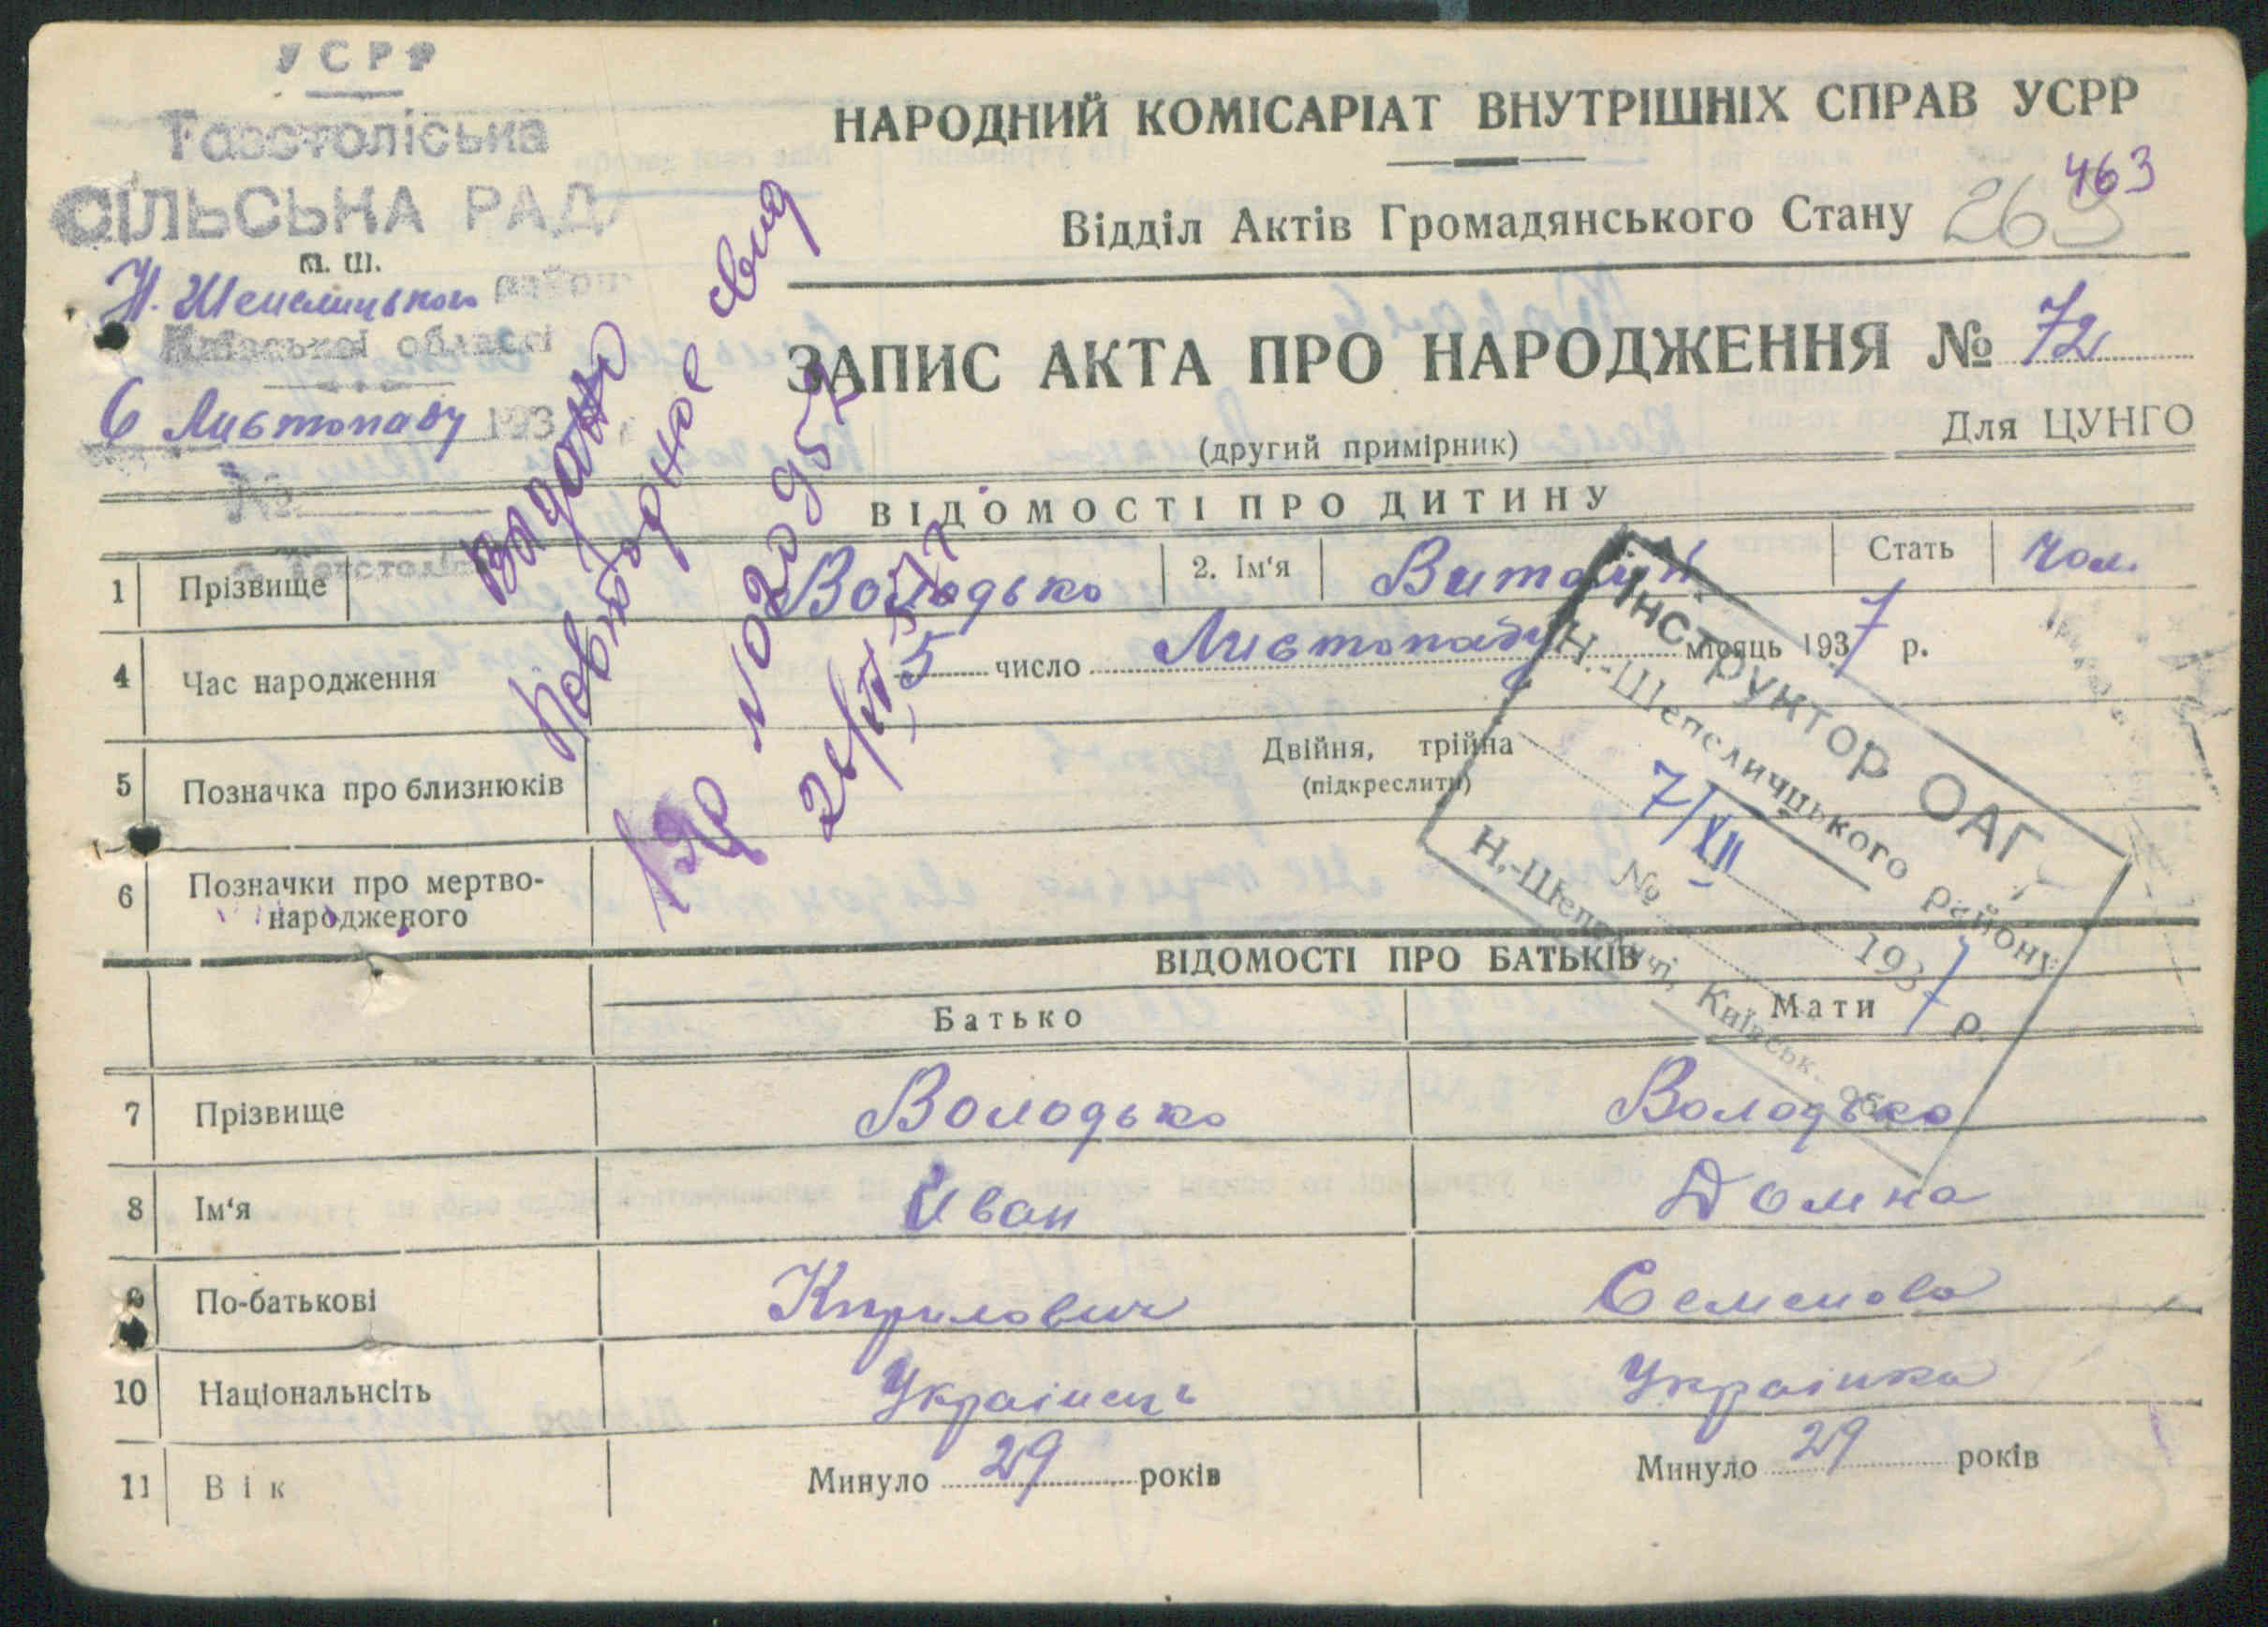 УСРР
Товстоліська
СІЛЬСЬКА РАДА
п. ш.
Н. Шепелицького район
Київської області
6 Листопаду 193
№
НАРОДНИЙ КОМІСАРІАТ ВНУТРІШНІХ СПРАВ УСРР
463
Відділ Актів Громадянського Стану 269
ЗАПИС АКТА ПРО НАРОДЖЕННЯ № 72
(другий примірник)
Для ЦУНГО
Видано
повторное свид
ВІДОМОСТІ ПРО ДИТИНУ
1 Прізвище Володько 2. Ім‘я Виталій Стать Чол.
4 Час народження 5 число Листопаду місяць 1937 р.
5 Позначка про близнюків Двійня, трійна
(підкреслити)
6 Позначки про мертво-
народженого
Інструктор ОАГС
Н.-Шепеличцького району
7/XII 1937 р.
№
Н.-Шепеличі, Київськ. обл.
ВІДОМОСТІ ПРО БАТЬКІВ
Батько Мати
7 Прізвище Володько Володько
8 Ім‘я Иван Домна
9 По-батькові Кирилович Семенова
10 Національнсіть Українець Українка
11 Вік Минуло 29 років Минуло 29 років